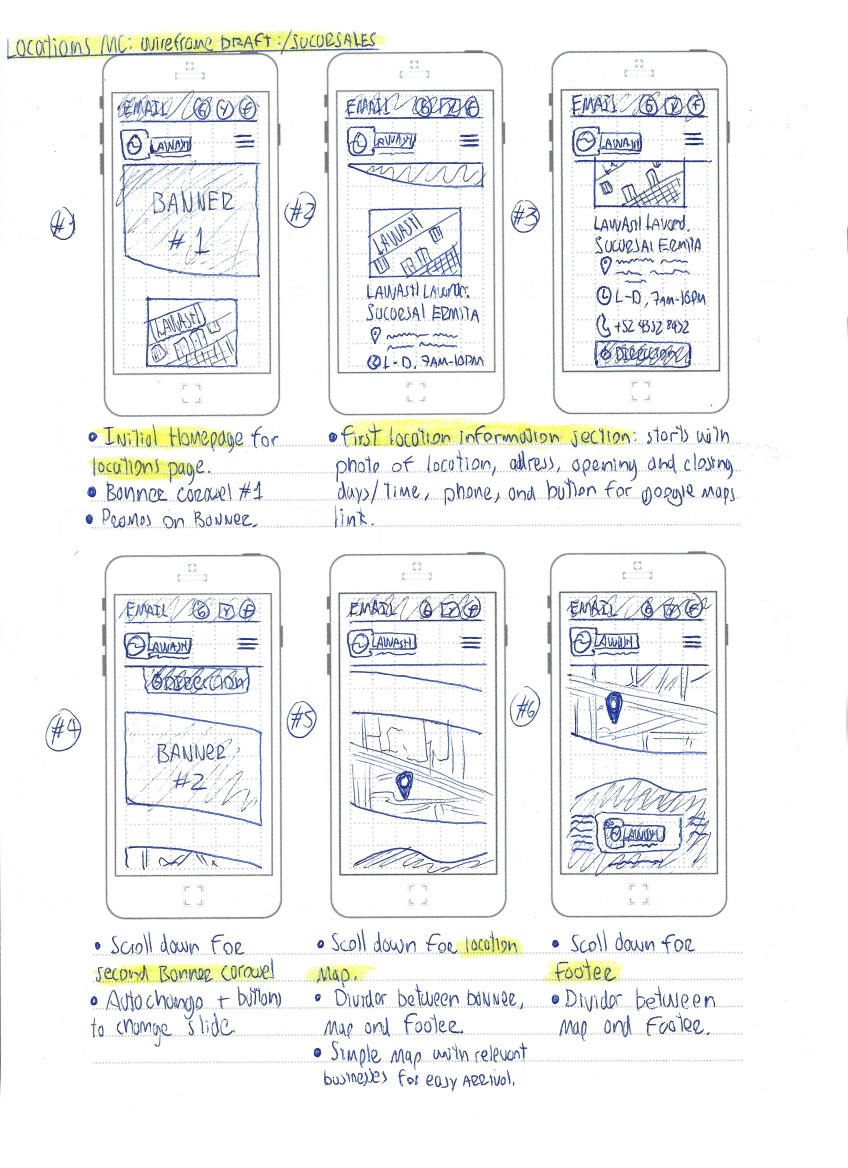 LOCATIONS MC: WIREFRAME DRAFT:/SUCURSALES
#1
EMAIL G Y F
LAWASH
BANNER
#1
LAWASH
#2
EMAIL G Y F
LAWASH
LAWASH
LAWASH LAVAND.
SUCURSAL ERMITA
L-D, 7AM-10PM
#3
EMAIL G Y F
LAWASH
LAWASH LAVAND.
SUCURSAL ERMITA
L-D, 7AM-10PM
+52 4352 8432
DIRECCION
• Initial Homepage for
locations page.
• Banner carousel #1
• Promos on Banner.
• First location information section: starts with
photo of location, address, opening and closing
days/time, phone, and button for google maps
link.
#4
EMAIL G Y F
LAWASH
DIRECCION
BANNER
#2
#5
EMAIL G Y F
LAWASH
#6
EMAIL G Y F
LAWASH
LAWASH
• Scroll down for
second Banner carousel
• Auto change + button
to change slide.
• Scroll down for location
Map.
• Divider between banner,
map and footer.
• Simple map with relevant
businesses for easy arrival.
• Scroll down for
footer
• Divider between
map and footer.